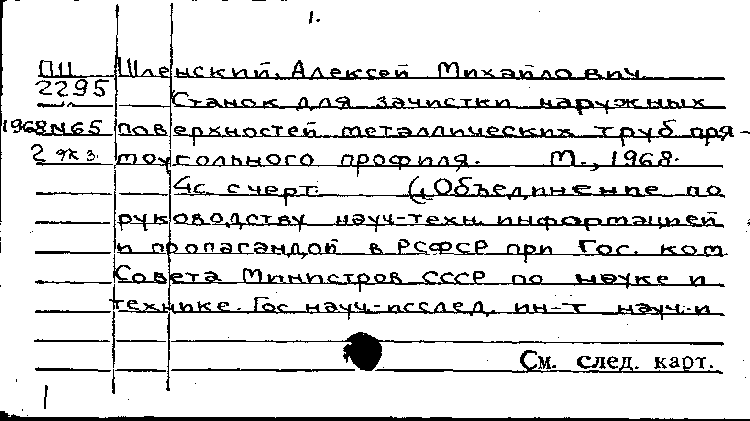 1.
ПЦ Шленский, Алексей Михайлович
2295
Станок для зачистки наружных
1968 №65 поверхностей металлических труб пря-
2 экз. моугольного профиля. М., 1968.
4с с черт. (Объединение по
руководству науч-техн. информацией
и пропагандой в РСФСР при Гос. ком
Совета Министров СССР по науке и
технике. Гос науч-исслед. ин-т науч. и
См. след. карт.
1